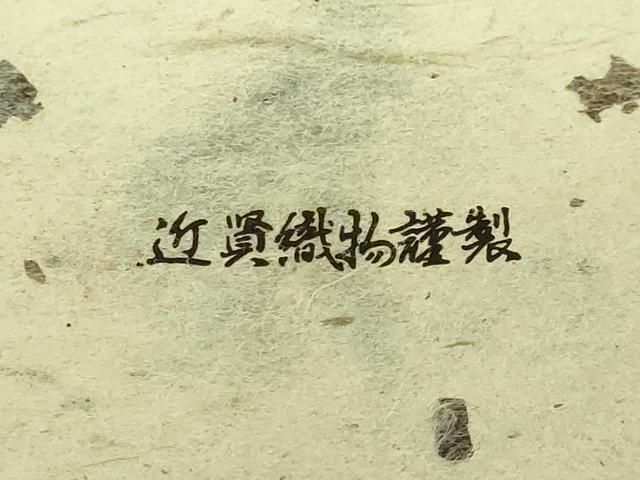 近賢織物謹製